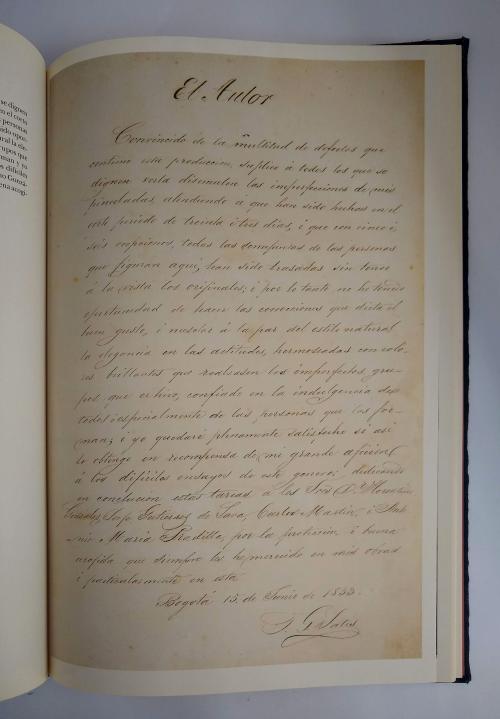 se dignen
en el corto
personas
El Autor
Convincido de la multitud de defectos que
contiene esta produccion, suplico á todos los que se
dignen verla disimulen las imperfecciones de mis
pinceladas, atendiendo á que han sido hechas en el
corto periodo de treinta i tres dias, i que con cinco ó
seis escepciones, todas las de las personas
que figuran aquí, han sido trasadas sin tener
á la vista los orijinales; i por lo tanto no he tenido
oportunidad de hacer las correcciones que dicta el
buen gusto, i mesclar á la par del estilo natural
la elegancia en las actitudes, hermoseadas con colo-
res brillantes que realzasen los imperfectos gru-
pos que exhivo, confiado en la indulgencia de
todos i especialmente de las personas que los for-
man; i yo quedaré plenamente satisfecho si así
lo obtengo en recompensa de mi grande aficion
á los difíciles ensayos de este genero; dedicando
en conclusion estas tareas á los Sres
Gonzales, Gutierres de Lara, Carlos Martin, i Anto-
nio Maria Pradilla, por la proteccion i buena
acojida que siempre les he merecido en mis obras
i particularmente en esta
Bogotá 15 de Junio de 1853.